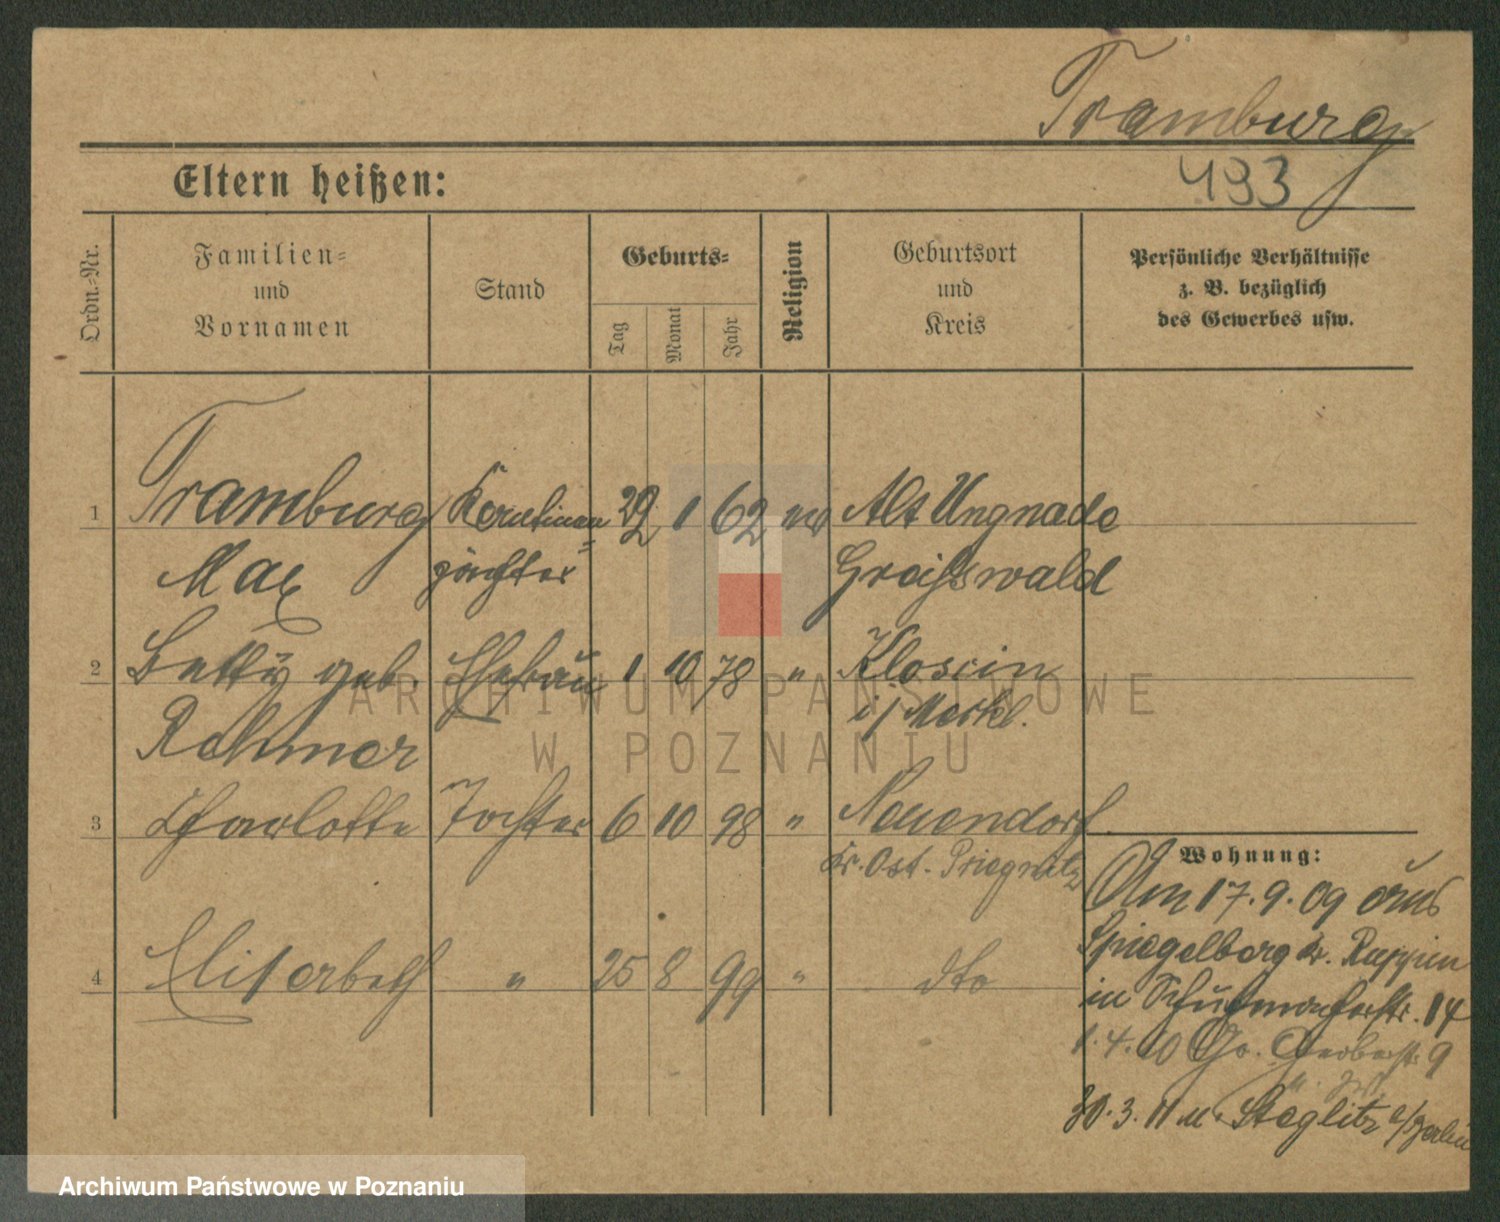 Tramburg
493
Eltern heißen:
Ordn.-Nr.
Familien- und Vornamen
Stand
Geburts-
Tag
Monat
Jahr
Religion
Geburtsort und Kreis
Persönliche Verhältnisse
z. B. bezüglich
des Gewerbes usw.
1 Tramburg Kantinen 1 62 Alt Ungnade
Max pächter Greifswald
2 Betty geb. Ehefrau 1 10 78 " Kloscin
Rehmer i/ Meckl.
3 Charlotte Tochter 6 10 98 " Neuendorf
Kr. Ost-Priegnitz
4 Elisabeth " 25 8 99 " dto
Wohnung:
Am 17.9.09 aus
Spiegelberg Kr. Ruppin
in Schuhmacherstr. 14
1.4.10 Gr. Gerberstr. 9
30.3.11 n. Steglitz b/Berlin
ARCHIWUM PAŃSTWOWE
W POZNANIU
Archiwum Państwowe w Poznaniu